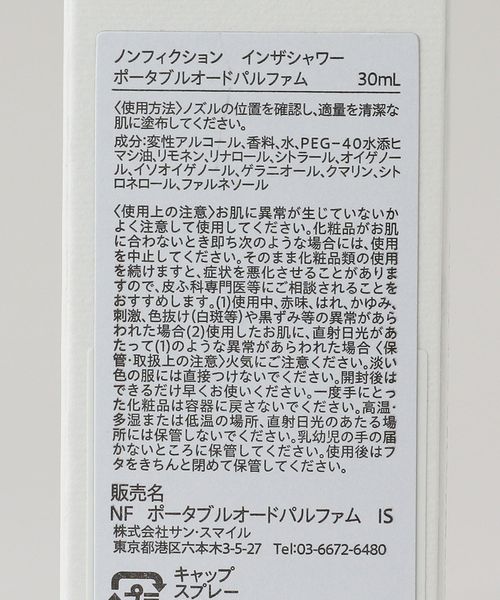 ノンフィクション　インザシャワー
ポータブルオードパルファム　30mL
〈使用方法〉ノズルの位置を確認し、適量を清潔な
肌に塗布してください。
成分:変性アルコール、香料、水、PEG-40水添ヒ
マシ油、リモネン、リナロール、シトラール、オイゲノー
ル、イソオイゲノール、ゲラニオール、クマリン、シト
ロネロール、ファルネソール
〈使用上の注意〉お肌に異常が生じていないか
よく注意して使用してください。化粧品がお肌
に合わないとき即ち次のような場合には、使用
を中止してください。そのまま化粧品類の使用
を続けますと、症状を悪化させることがありま
すので、皮ふ科専門医等にご相談されることを
おすすめします。(1)使用中、赤味、はれ、かゆみ、
刺激、色抜け(白斑等)や黒ずみ等の異常があら
われた場合(2)使用したお肌に、直射日光があ
たって(1)のような異常があらわれた場合〈保
管・取扱上の注意〉火気にご注意ください。淡い
色の服には直接つけないでください。開封後は
できるだけ早くお使いください。一度手にとっ
た化粧品は容器に戻さないでください。高温・
多湿または低温の場所、直射日光のあたる場
所には保管しないでください。乳幼児の手の届
かないところに保管してください。使用後はフ
タをきちんと閉めて保管してください。
販売名
NF　ポータブルオードパルファム　IS
株式会社サン・スマイル
東京都港区六本木3-5-27　Tel:03-6672-6480
キャップ
スプレー